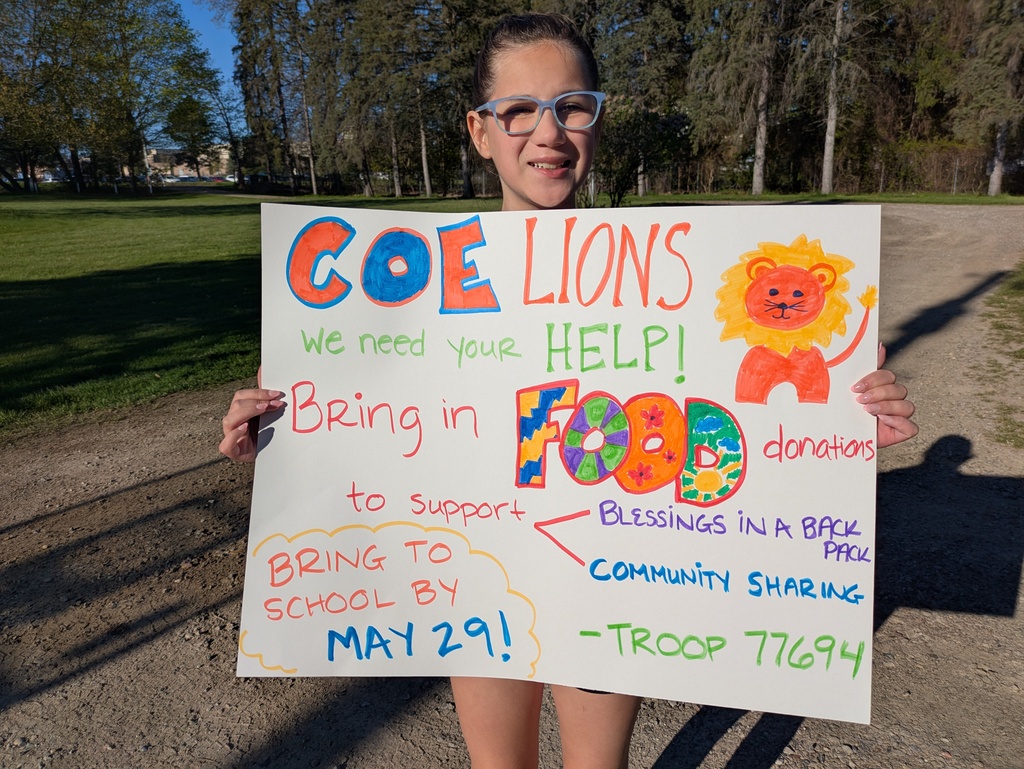 COE LIONS
we need your HELP!
Bring in FOOD donations
to support
BLESSINGS IN A BACK
PACK
COMMUNITY SHARING
BRING TO
SCHOOL BY
MAY 29!
-TROOP 77694